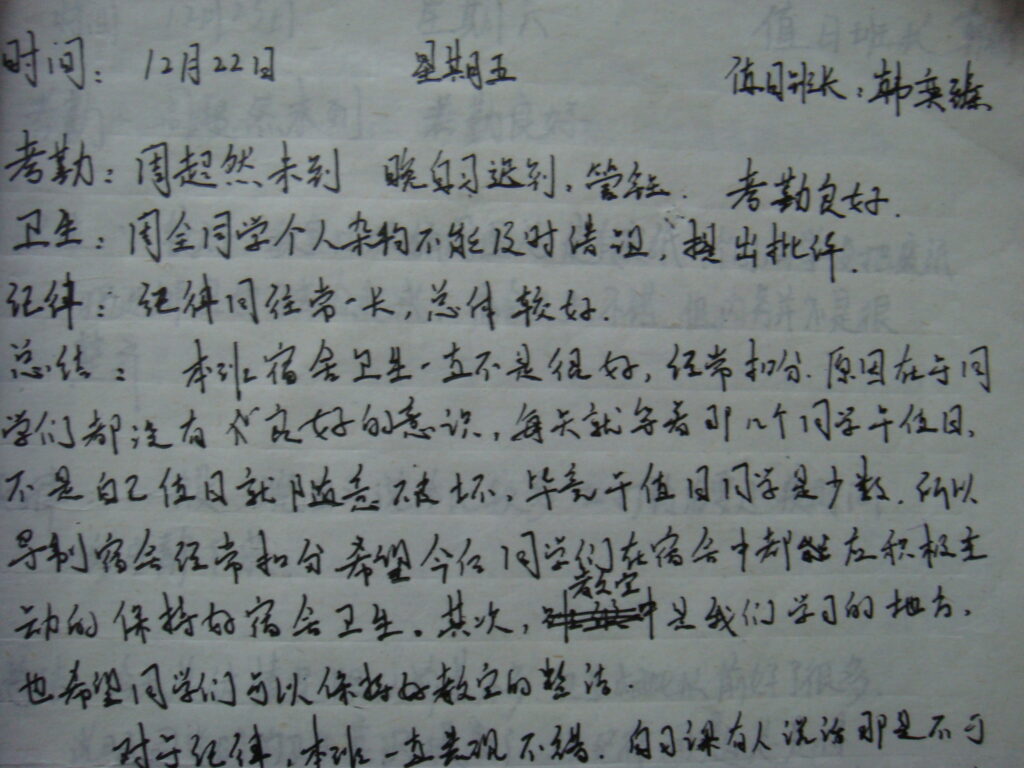 时间：12月22日 星期五 值日班长：韩奕
考勤：周超然未到 晚自习迟到，管钰. 考勤良好.
卫生：周全同学个人杂物不能及时借, 提出批评.
纪律：纪律同往常一长，总体较好.
总结： 本班宿舍卫生一直不是很好，经常扣分.原因在于同
学们都没有良好的意识，每天就等着那几个同学干值日，
不是自己值日就随意破坏，毕竟干值日同学是少数.所以
导制宿舍经常扣分希望今后同学们在宿舍中都能积极主
动的保持好宿舍卫生。其次，教室中是我们学习的地方，
也希望同学们可以保持好教室的整洁
对于纪律，本班一直表现不错.自习课有人说话那是不可